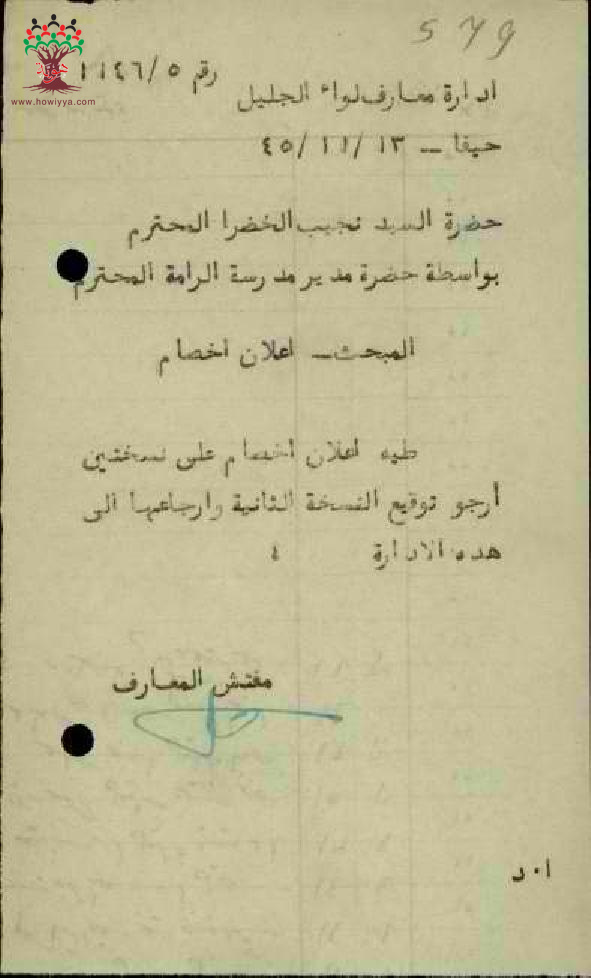 579
www.howiyya.com
ادارة معارف لواء الجليل رقم ١١٤٦/٥
حيفا – ٤٥/١١/١٣
حضرة السيد نجيب الخضرا المحترم
بواسطة حضرة مدير مدرسة الرامة المحترم
المبحث – اعلان اخصام
طيه اعلان اخصام على نسختين
أرجو توقيع النسخة الثانية وارجاعها الى
هذه الادارة ،
مفتش المعارف
ا٠د